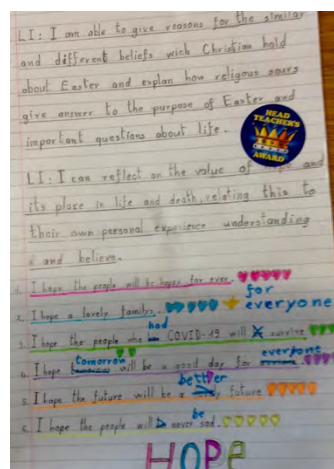 LI: I am able to give reasons for the similar
and different beliefs wich Christian hold
about Easter and explan how religous
give answer to the purpose of Easter and
important questions about life.
HEAD
TEACHER'S
AWARD
LI: I can reflect on the value of and
its place in life and death, relating this to
their own personal experience understanding
and believe.
1. I hope the people will be happy for ever.
2. I hope a lovely familys. for
everyone
had
3. I hope the people who COVID-19 will survive
tomorrow everyone
4. I hope will be a good day for
better
5. I hope the future will be a future
be
6. I hope the people will never sad.
HOPE